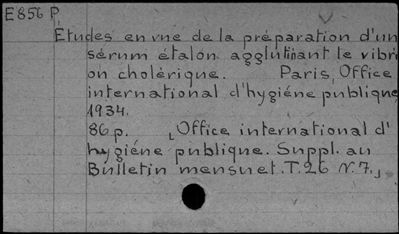 E856 P
Etudes en vue de la préparation d'un
sérum étalon agglutinant le vibri
on cholérique. Paris, Office
international d'hygiéne publique
1934.
86 p. [Office international d'
hygiéne publique. Suppl. au
Bulletin mensuel. T. 26 N. 7.]